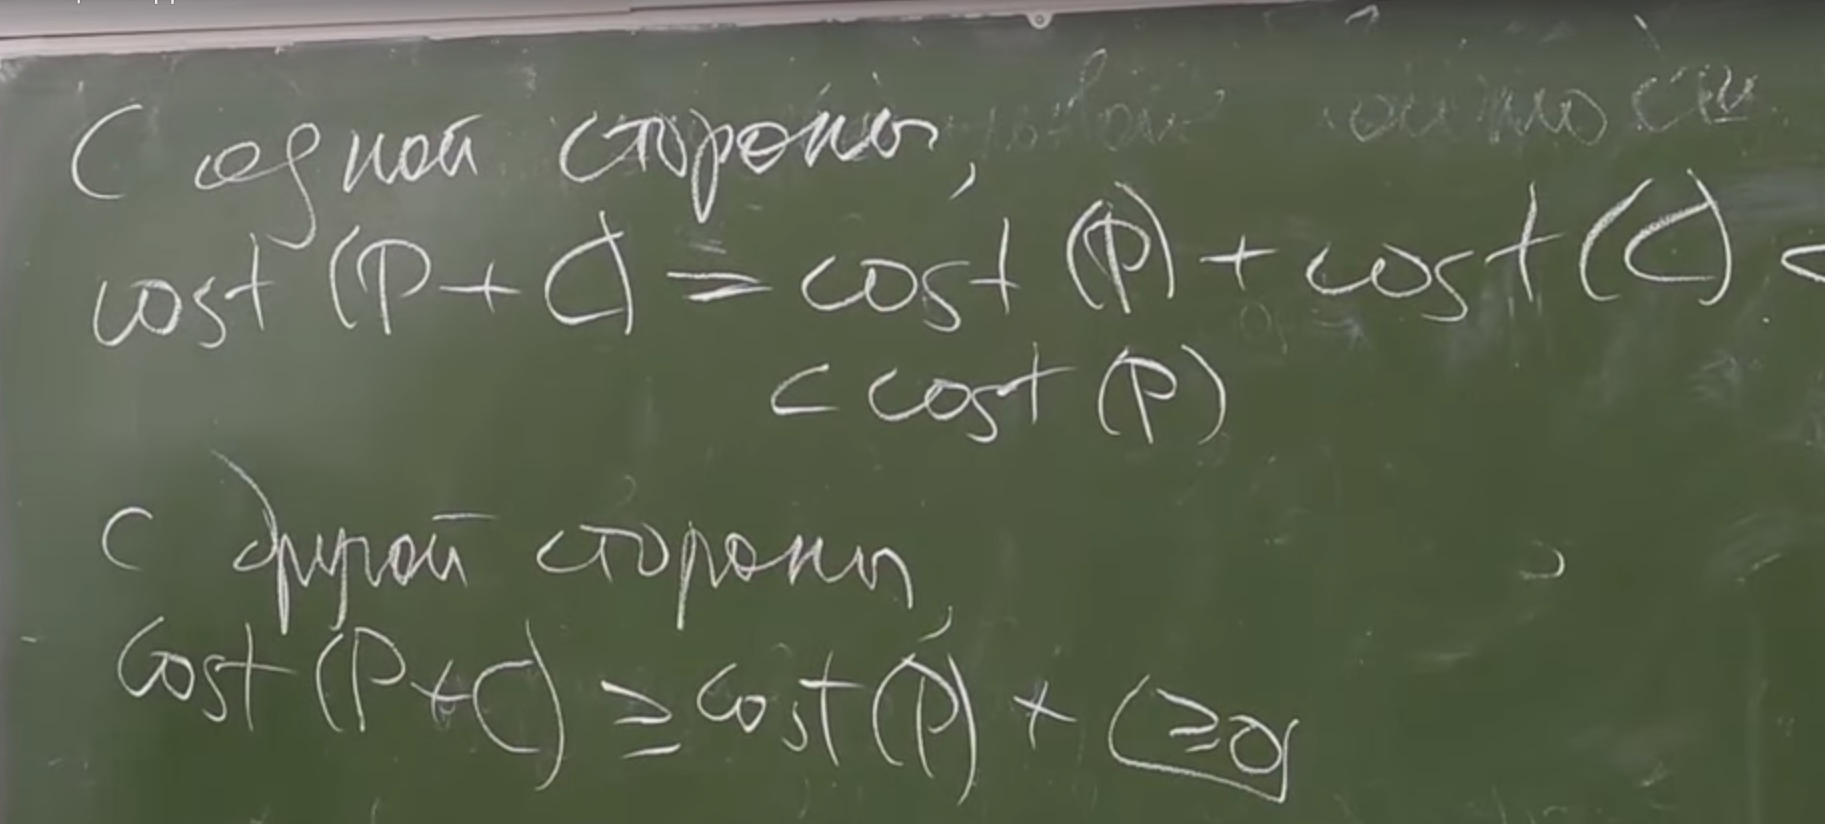 С одной стороны,
cost (P+C) = cost (P) + cost (C) <
< cost (P)
С другой стороны,
cost (P+C) ≥ cost (P) + (≥0)